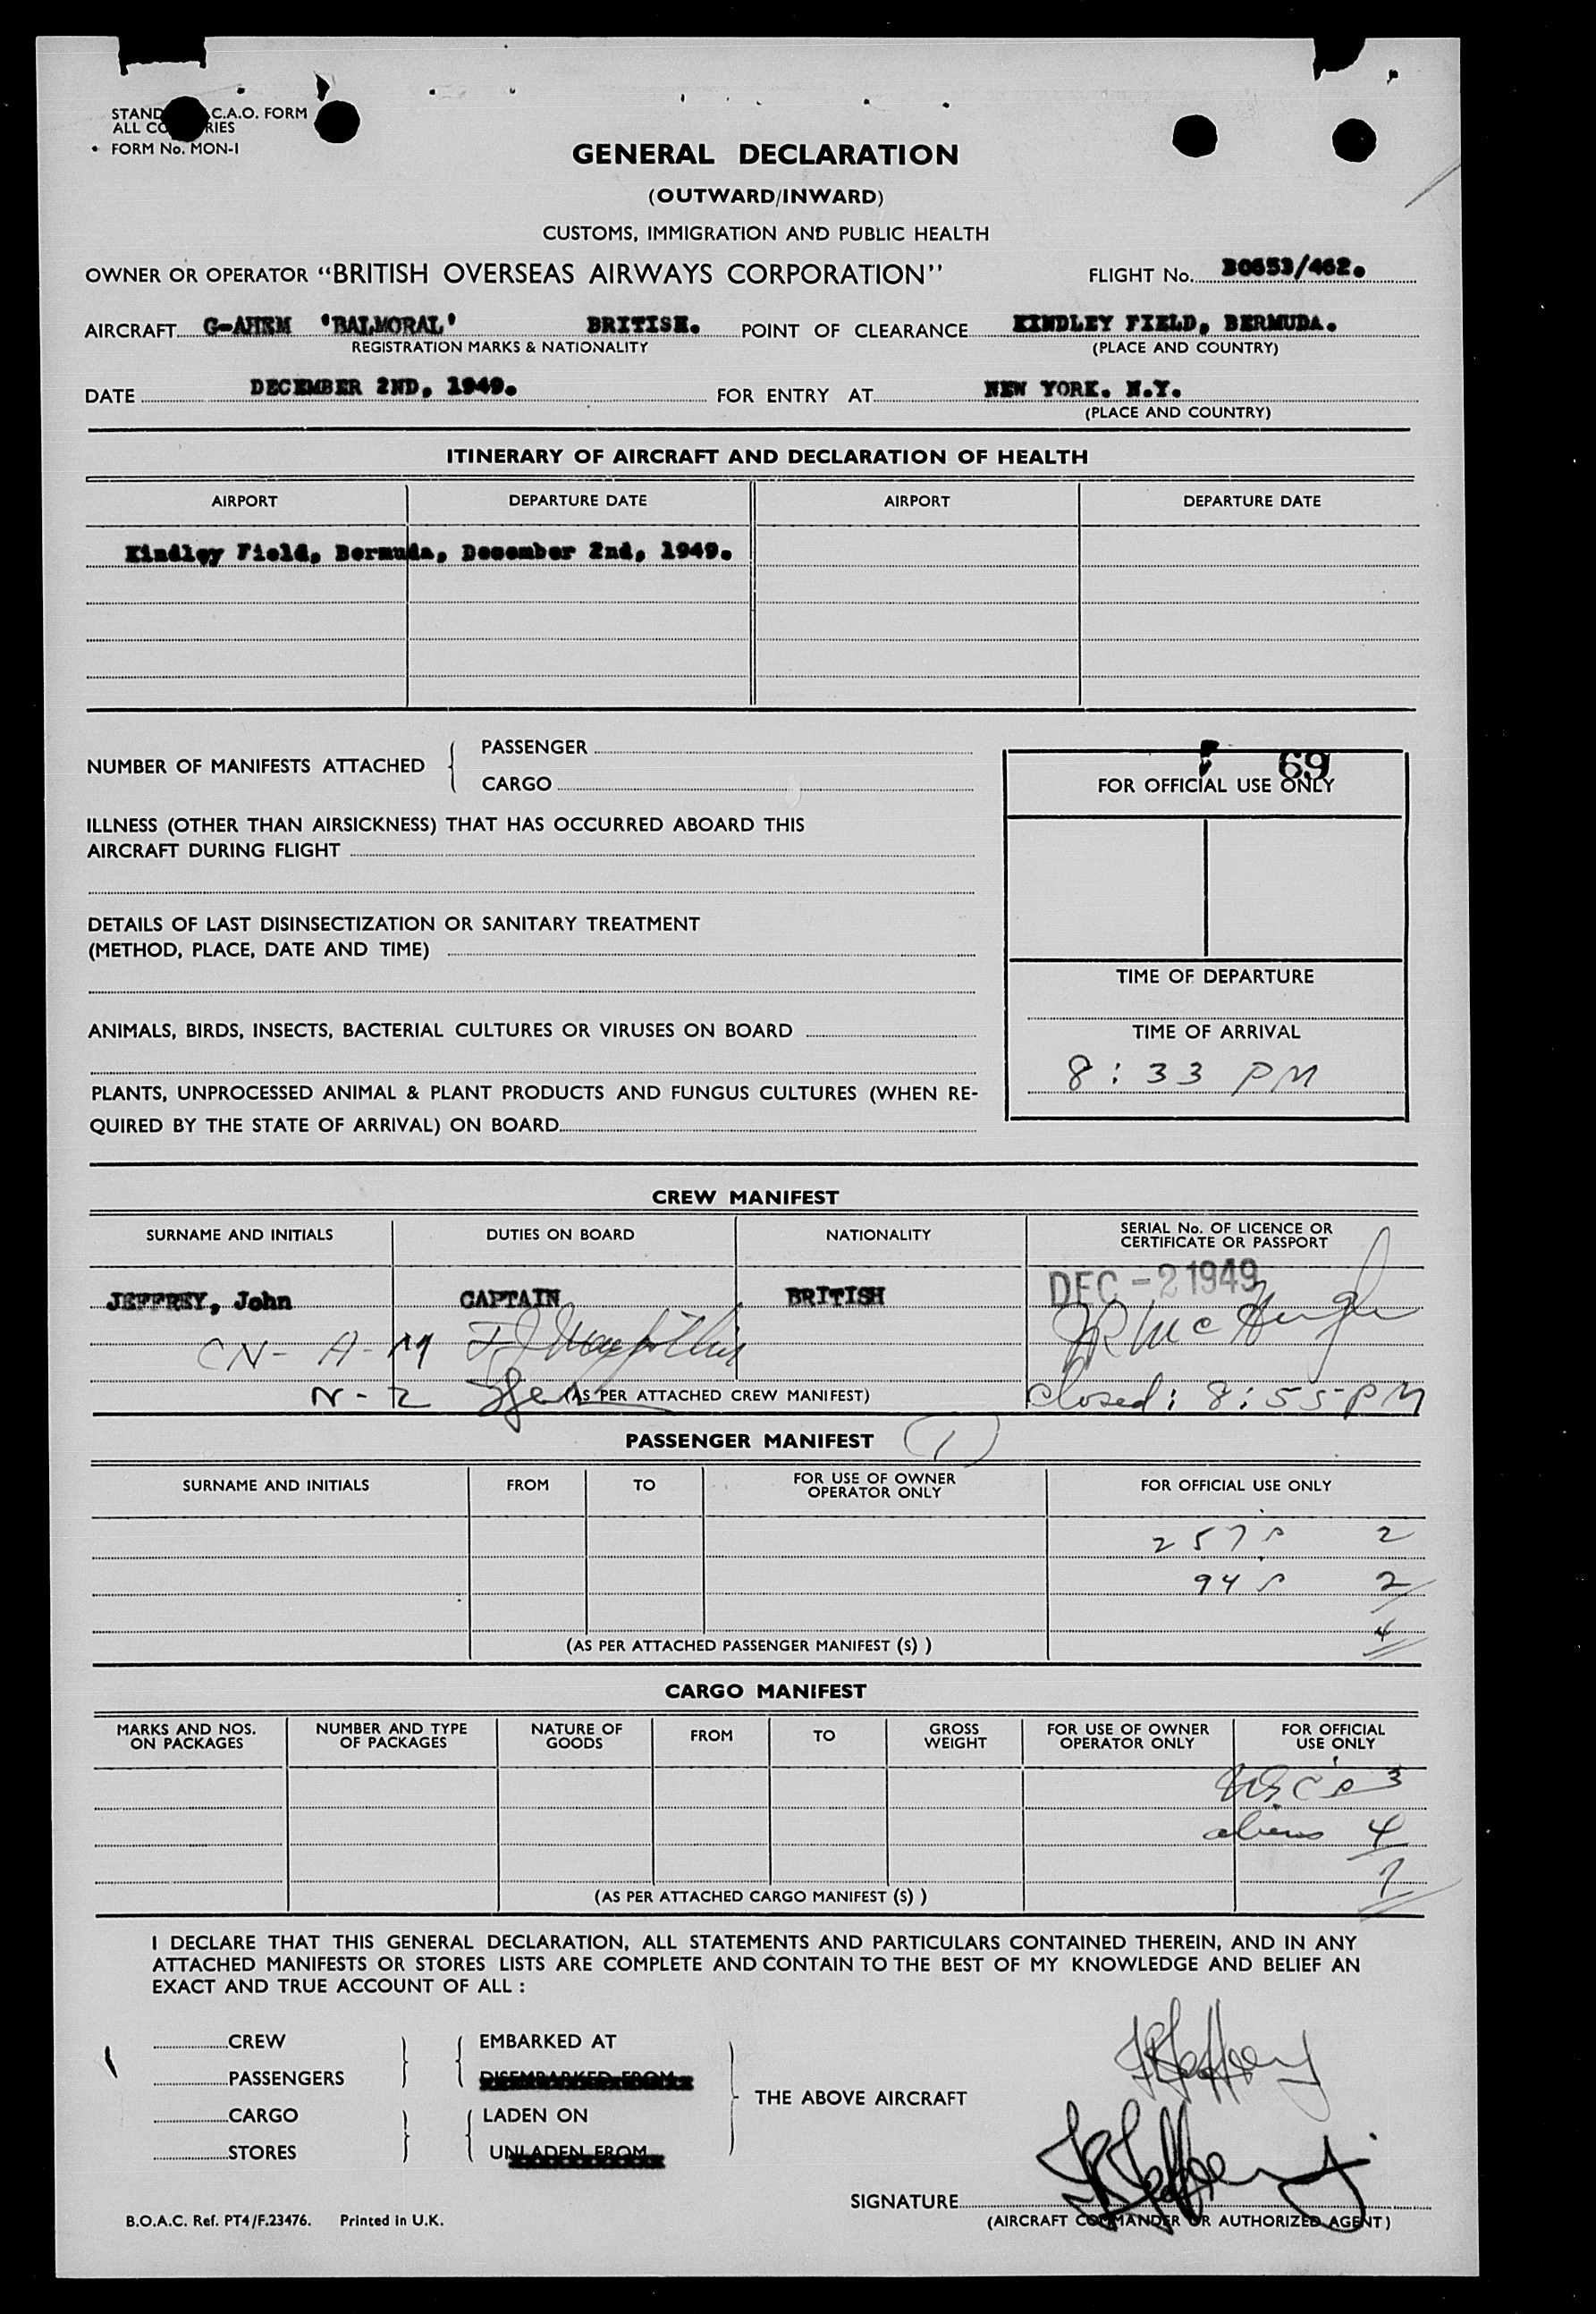 FORM No. MON-I
GENERAL DECLARATION
(OUTWARD/INWARD)
CUSTOMS, IMMIGRATION AND PUBLIC HEALTH
OWNER OR OPERATOR "BRITISH OVERSEAS AIRWAYS CORPORATION" FLIGHT No.
AIRCRAFT G-AHEM 'BALMORAL' BRITISH. POINT OF CLEARANCE KINDLEY FIELD, BERMUDA.
REGISTRATION MARKS & NATIONALITY (PLACE AND COUNTRY)
DATE DECEMBER 2ND, 1949. FOR ENTRY AT NEW YORK. N.Y.
(PLACE AND COUNTRY)
ITINERARY OF AIRCRAFT AND DECLARATION OF HEALTH
AIRPORT DEPARTURE DATE AIRPORT DEPARTURE DATE
Kindley Field, Bermuda, December 2nd, 1949.
NUMBER OF MANIFESTS ATTACHED
PASSENGER
CARGO
69
FOR OFFICIAL USE ONLY
ILLNESS (OTHER THAN AIRSICKNESS) THAT HAS OCCURRED ABOARD THIS
AIRCRAFT DURING FLIGHT
DETAILS OF LAST DISINSECTIZATION OR SANITARY TREATMENT
(METHOD, PLACE, DATE AND TIME)
TIME OF DEPARTURE
ANIMALS, BIRDS, INSECTS, BACTERIAL CULTURES OR VIRUSES ON BOARD
TIME OF ARRIVAL
8:33 PM
PLANTS, UNPROCESSED ANIMAL & PLANT PRODUCTS AND FUNGUS CULTURES (WHEN RE-
QUIRED BY THE STATE OF ARRIVAL) ON BOARD
CREW MANIFEST
SURNAME AND INITIALS DUTIES ON BOARD NATIONALITY SERIAL No. OF LICENCE OR
CERTIFICATE OR PASSPORT
DEC -2 1949
JEFFREY, John CAPTAIN BRITISH
CN- A-M
N-2 (AS PER ATTACHED CREW MANIFEST) closed: 8:55 PM
PASSENGER MANIFEST (1)
SURNAME AND INITIALS FROM TO FOR USE OF OWNER
OPERATOR ONLY FOR OFFICIAL USE ONLY
257 2
94 2
4
(AS PER ATTACHED PASSENGER MANIFEST (S) )
CARGO MANIFEST
MARKS AND NOS.
ON PACKAGES NUMBER AND TYPE
OF PACKAGES NATURE OF
GOODS FROM TO GROSS
WEIGHT FOR USE OF OWNER
OPERATOR ONLY FOR OFFICIAL
USE ONLY
USC 3
aliens 4
7
(AS PER ATTACHED CARGO MANIFEST (S) )
I DECLARE THAT THIS GENERAL DECLARATION, ALL STATEMENTS AND PARTICULARS CONTAINED THEREIN, AND IN ANY
ATTACHED MANIFESTS OR STORES LISTS ARE COMPLETE AND CONTAIN TO THE BEST OF MY KNOWLEDGE AND BELIEF AN
EXACT AND TRUE ACCOUNT OF ALL :
CREW EMBARKED AT
PASSENGERS DISEMBARKED FROM
THE ABOVE AIRCRAFT
CARGO LADEN ON
STORES UNLADEN FROM
SIGNATURE
(AIRCRAFT COMMANDER OR AUTHORIZED AGENT)
B.O.A.C. Ref. PT4/F.23476. Printed in U.K.